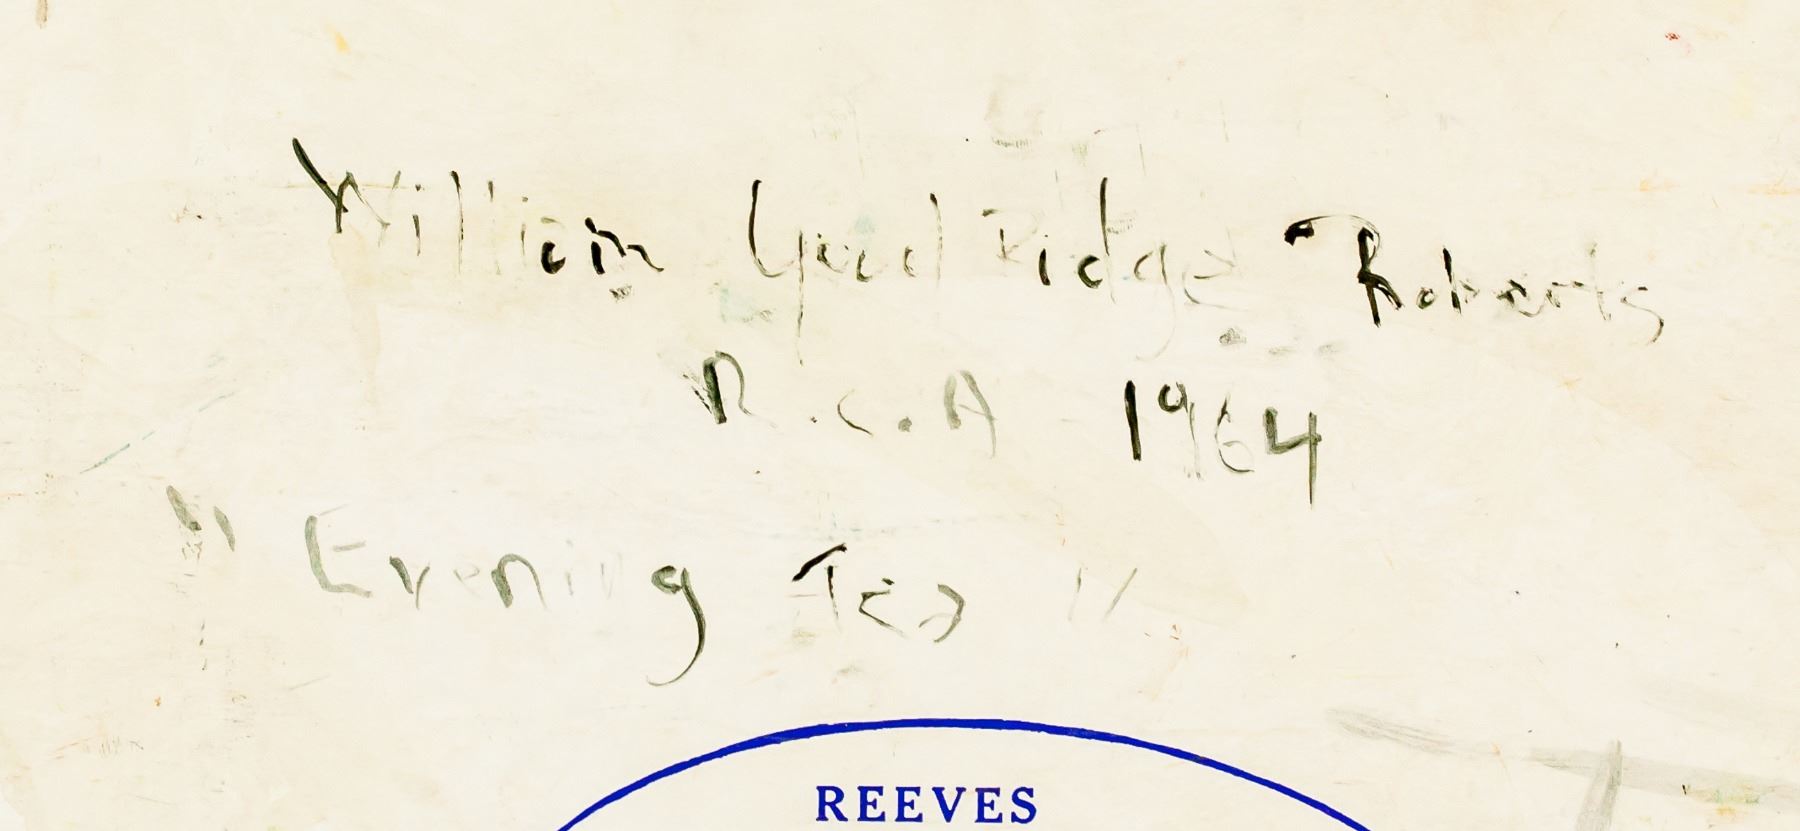 William Goodridge Roberts
R.C.A 1964
"Evening Tea"
REEVES